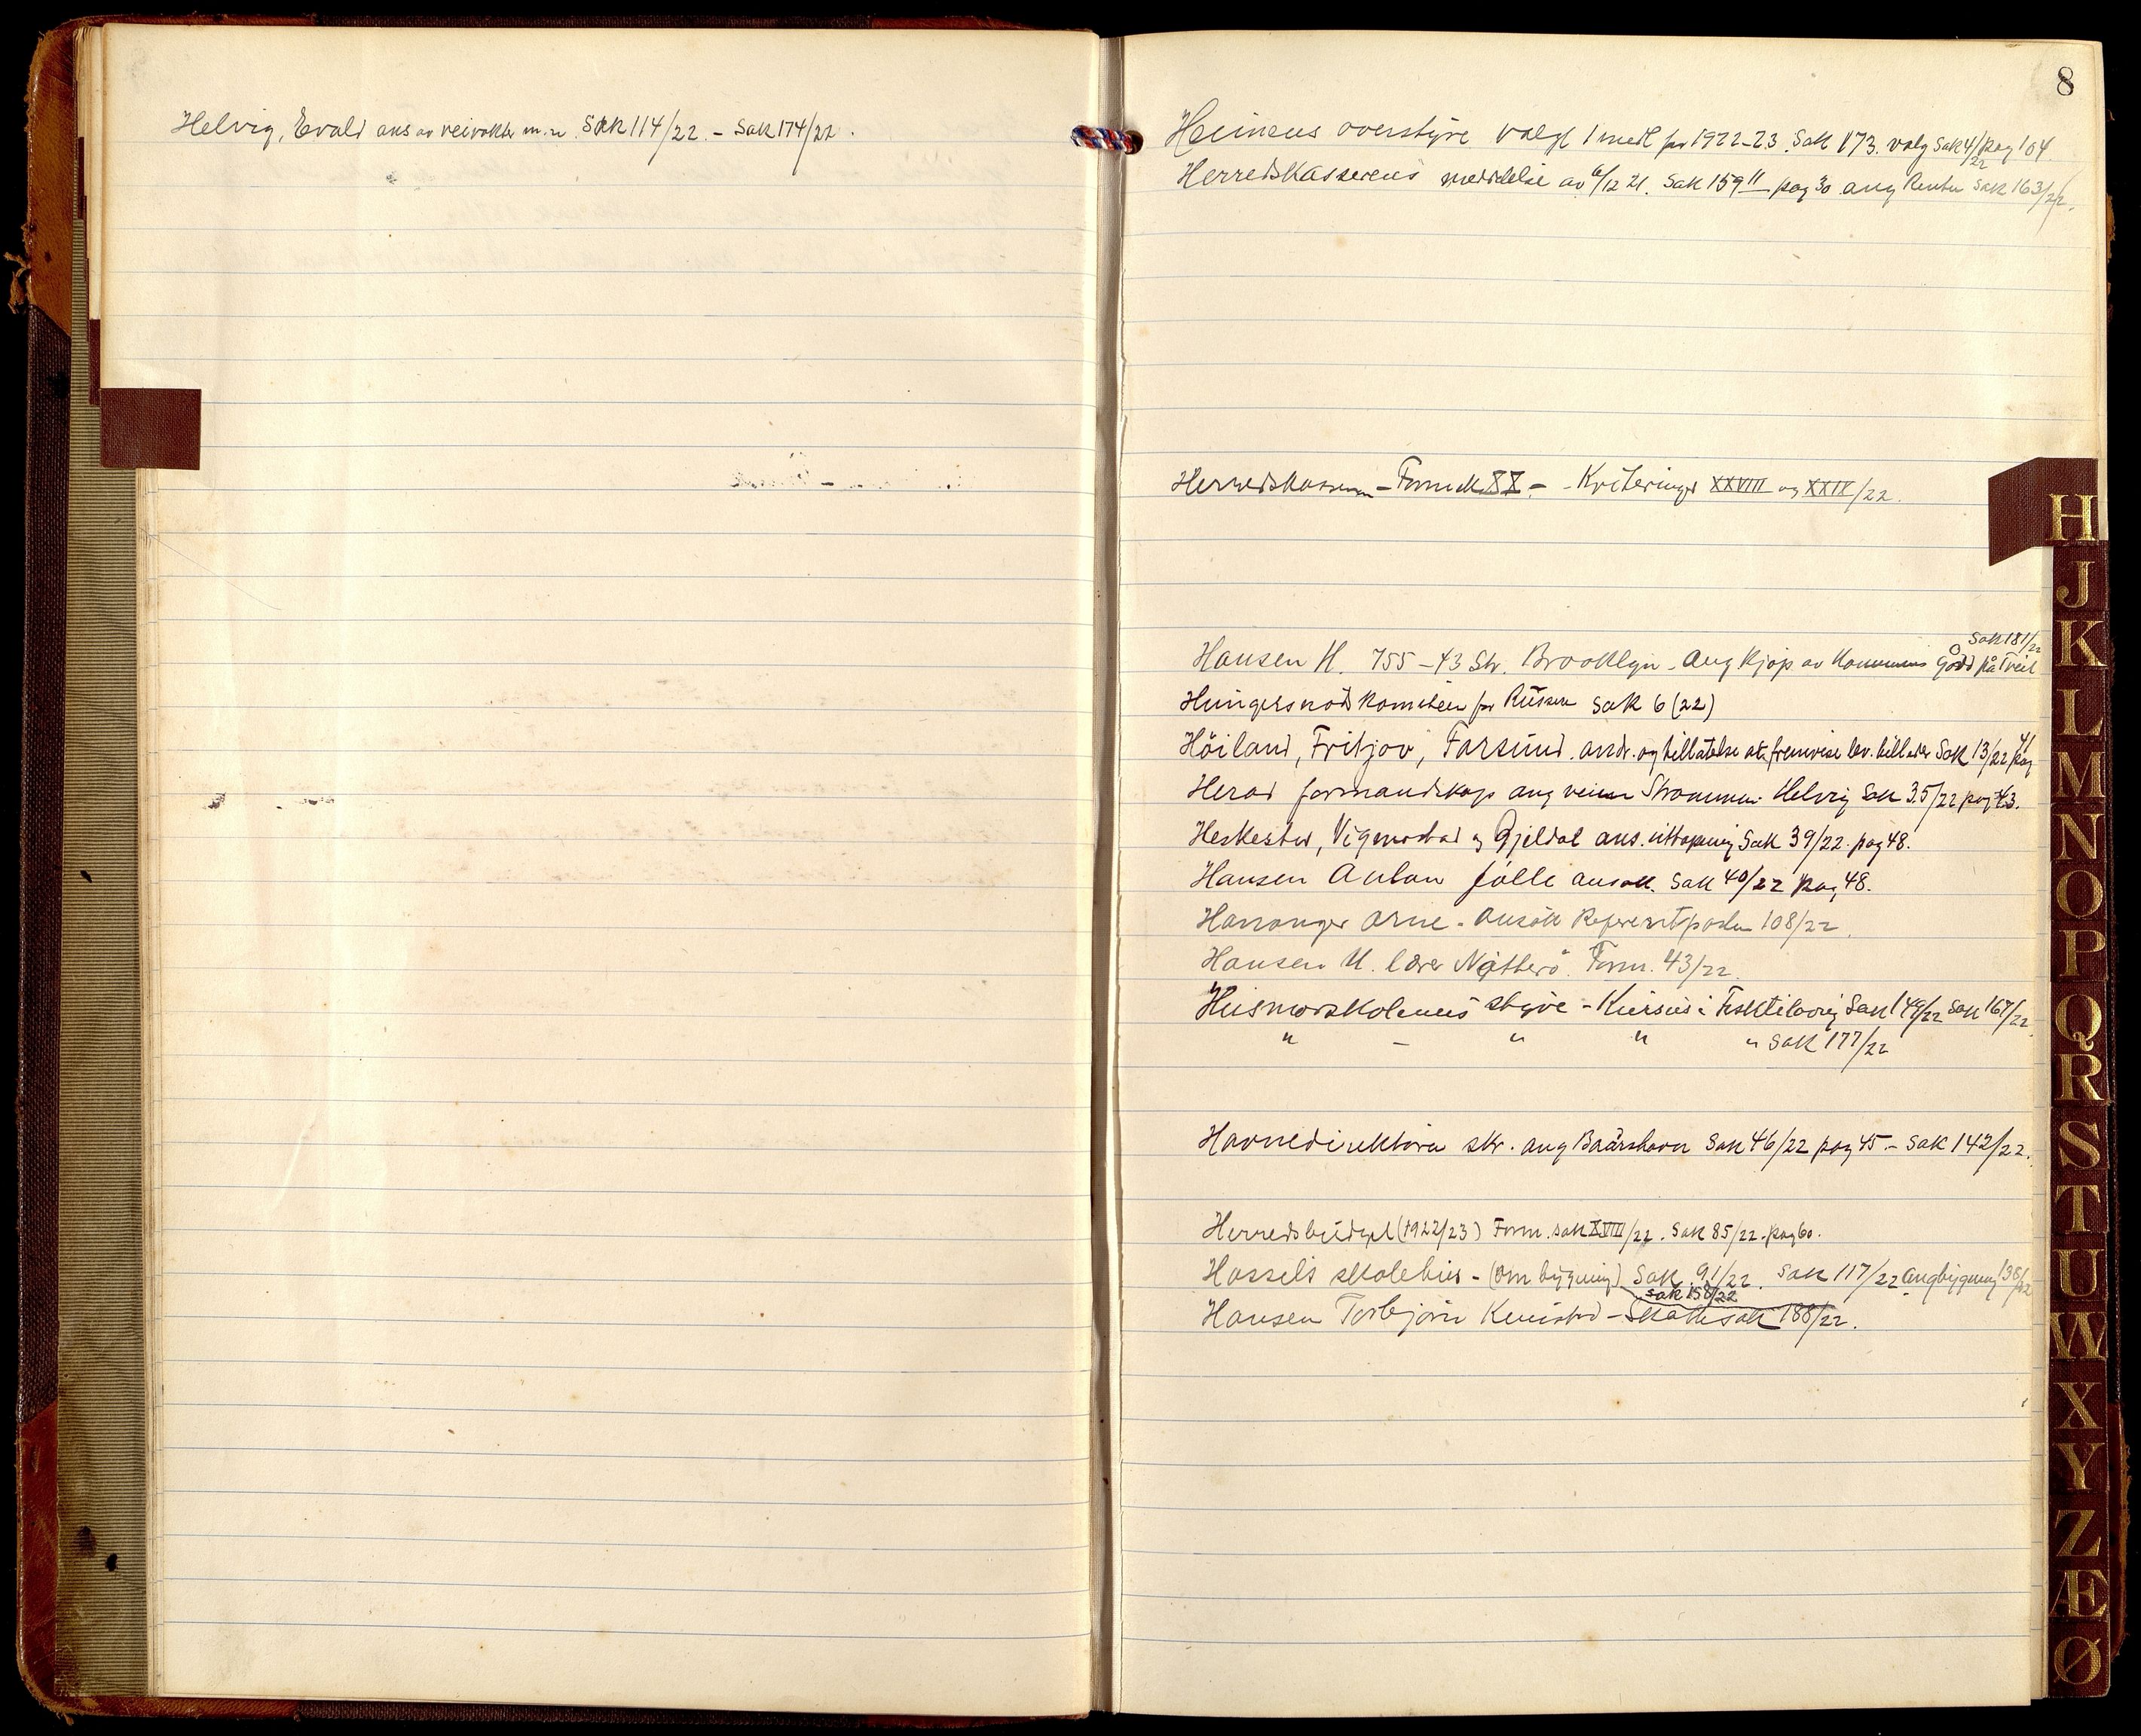 Helvig, Evald ans av veivokter m.v. Sak 114/22. - Sak 174/22.
8
Heimens overstyre valgt 1 medl for 1922-23. Sak 173. valg Sak 4/22 pag 104
Herredskasserens meddelelse av 6/12 21. Sak 159 II pag 30 ang Renter Sak 163/22.
Herredskasseren - Form sak XX. - Kvitteringer XXVIII og XXIX/22.
Sak 181/22
Hansen H. 755-43 Str. Brooklyn - Ang kjøp av Kommunens Gård på Tveit
Hungersnødskomiteen for Russen Sak 6 (22)
Höiland, Fritjov, Farsund. andr. og tillatelse at fremvise lev. billeder Sak 13/22 pag 41
Herad formandskap ang veien Strømmen-Helvig Sak 35/22 pag 43.
Heskestad, Vigmostad og Gjeldal ans. Sak 39/22. pag 48.
Hansen Anton Jølle ansøk. Sak 40/22 pag 48.
Hananger Arne - Ansøk 108/22.
Hansen H. lærer Nøtterö. Form. 43/22.
Husmorskolenes styre - Kursus i Fisktilavirg Sak 149/22 Sak 167/22
" - " " " Sak 177/22
Havnedirektøren skr. ang Baarshavn Sak 46/22 pag 45 - Sak 142/22.
Herredsbudget (1922/23) Form. sak XVIII/22. Sak 85/22. pag 60.
Hassels skolehus - (om bygning) Sak 91/22. Sak 117/22 ang bygning 138/22
Sak 158/22
Hansen Torbjørn - Skattesak 188/22.
H
J
K
L
M
N
O
P
Q
R
S
T
U
W
X
Y
Z
Æ
Ø